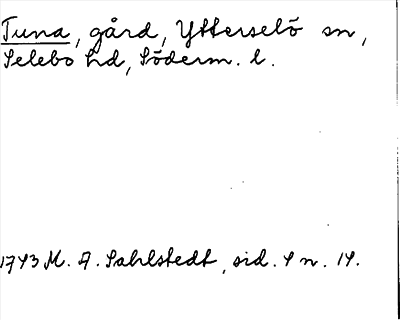 Tuna, gård, Ytterselö sn,
Selebo hd, Söderm. l.
1743 M. A. Sahlstedt, sid. 4 n. 14.